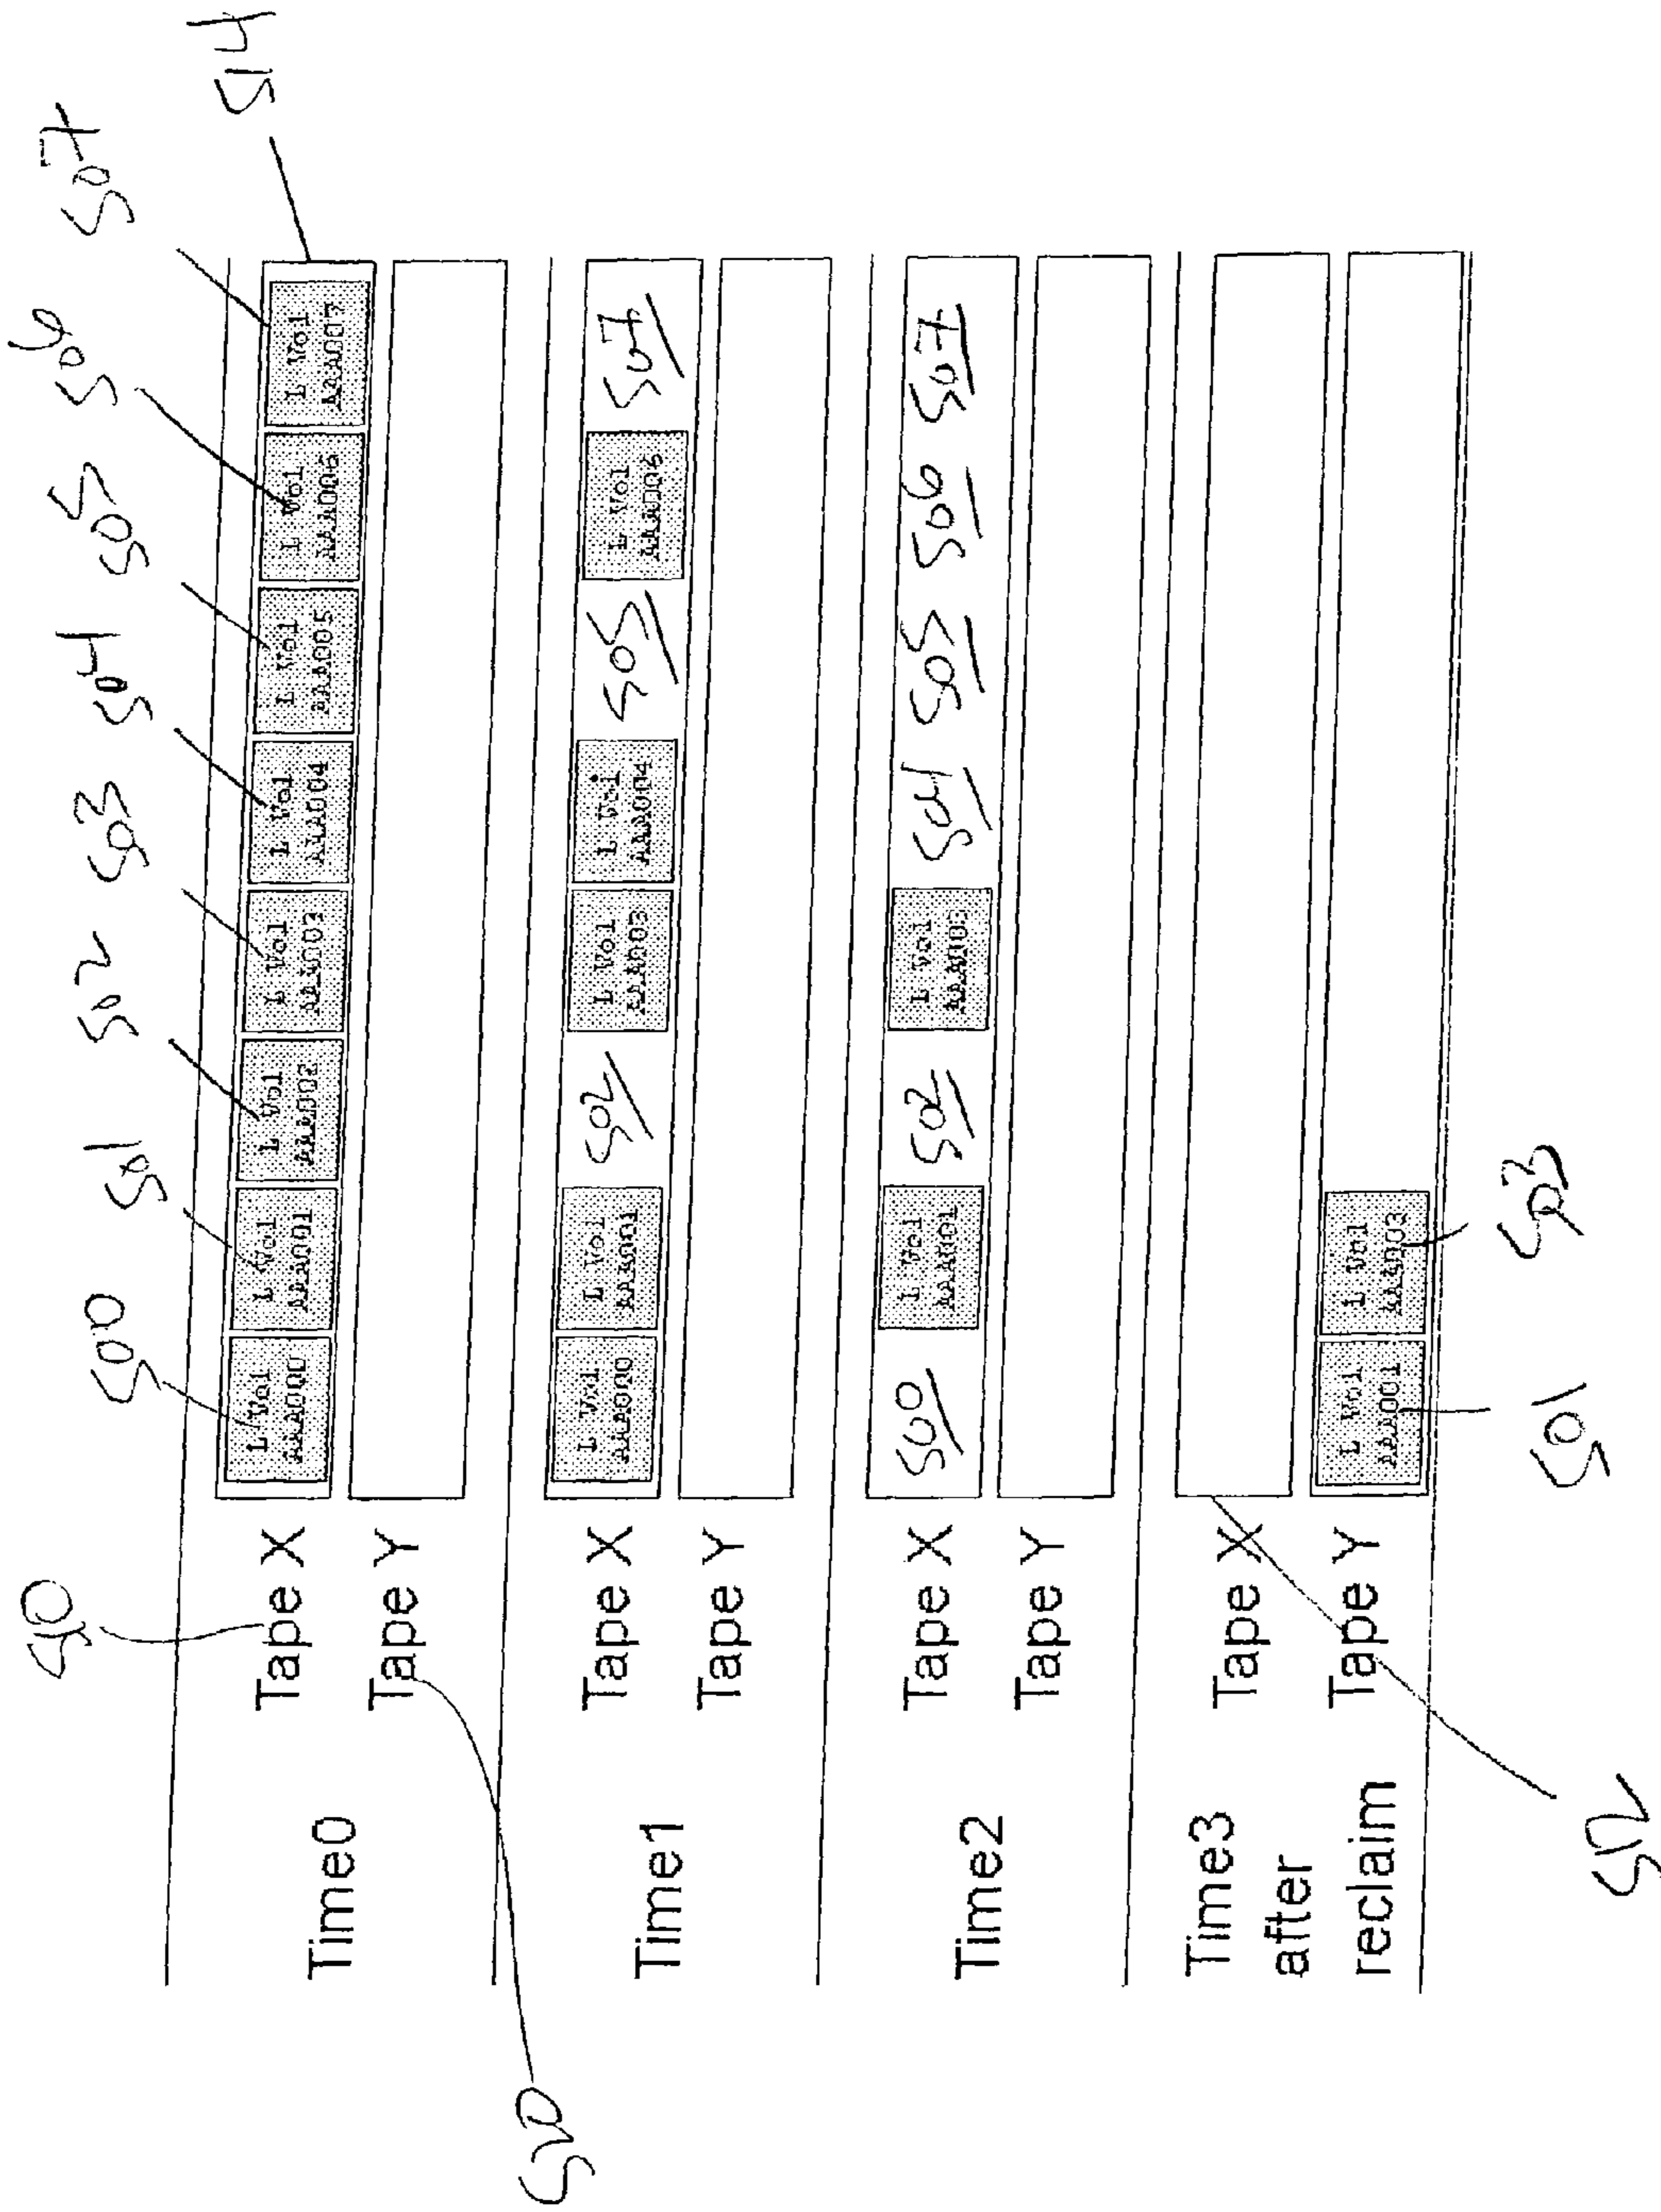 510 500 501 502 503 504 505 506 507
514
Time0
Tape X
L Vol AAA000
L Vol AAA001
L Vol AAA002
L Vol AAA003
L Vol AAA004
L Vol AAA005
L Vol AAA006
L Vol AAA007
Tape Y
520
Time1
Tape X
L Vol AAA000
L Vol AAA001
502
L Vol AAA003
L Vol AAA004
505
L Vol AAA006
507
Tape Y
Time2
Tape X
500
L Vol AAA001
502
L Vol AAA003
504
505
506
507
Tape Y
Time3
after
reclaim
Tape X
Tape Y
L Vol AAA001
L Vol AAA003
512 501 503